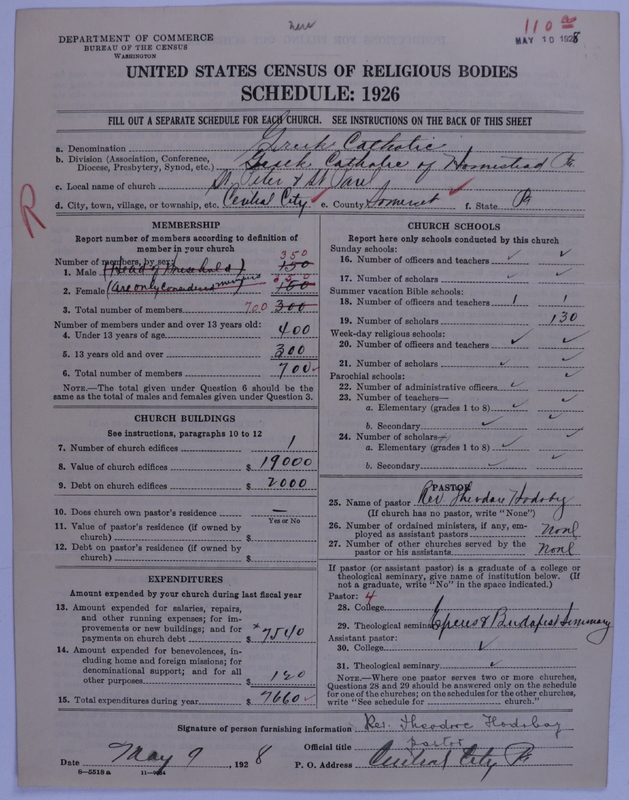 here
110
DEPARTMENT OF COMMERCE
BUREAU OF THE CENSUS
WASHINGTON
MAY 10 1928
UNITED STATES CENSUS OF RELIGIOUS BODIES
SCHEDULE: 1926
FILL OUT A SEPARATE SCHEDULE FOR EACH CHURCH. SEE INSTRUCTIONS ON THE BACK OF THIS SHEET
a. Denomination Greek Catholic
b. Division (Association, Conference, Diocese, Presbytery, Synod, etc.) Greek Catholic of Homestead Pa
c. Local name of church St. Peter & St. Paul
d. City, town, village, or township, etc. Central City e. County Somerset f. State Pa
R
MEMBERSHIP
Report number of members according to definition of
member in your church
Number of members, by sex: 350
1. Male (Head of Households) 150
2. Female (are only considered members) 350 150
3. Total number of members 700 300
Number of members under and over 13 years old:
4. Under 13 years of age 400
5. 13 years old and over 300
6. Total number of members 700
NOTE.—The total given under Question 6 should be
same as the total of males and females given under Question 3.
CHURCH BUILDINGS
See instructions, paragraphs 10 to 12
7. Number of church edifices 1
8. Value of church edifices $ 19000
9. Debt on church edifices $ 2000
10. Does church own pastor's residence? —
Yes or No
11. Value of pastor's residence (if owned by
church) $
12. Debt on pastor's residence (if owned by
church) $
EXPENDITURES
Amount expended by your church during last fiscal year
13. Amount expended for salaries, repairs,
and other running expenses; for im-
provements or new buildings; and for
payments on church debt $ 7540
14. Amount for benevolences, in-
cluding home and foreign missions; for
denominational support; and for all
other purposes $ 120
15. Total expenditures during year $ 7660
CHURCH SCHOOLS
Report here only schools conducted by this church
Sunday schools:
16. Number of officers and teachers
17. Number of scholars
Summer vacation Bible schools:
18. Number of officers and teachers 1 1
19. Number of scholars 130
Week-day religious schools:
20. Number of officers and teachers
21. Number of scholars
Parochial schools:
22. Number of administrative officers
23. Number of teachers—
a. Elementary (grades 1 to 8)
b. Secondary
24. Number of scholars—
a. Elementary (grades 1 to 8)
b. Secondary
PASTOR
25. Name of pastor Rev. Theodore Hodobay
(If church has no pastor, write "None")
26. Number of ordained ministers, if any, em-
ployed as assistant pastors none
27. Number of other churches served by the
pastor or his assistants none
If pastor (or assistant pastor) is a graduate of a college or
theological seminary, give name of institution below. (If
not a graduate, write "No" in the space indicated.)
Pastor: 4
28. College
29. Theological seminary Eperes & Budapest Seminary
Assistant pastor:
30. College
31. Theological seminary
NOTE.—Where one pastor serves two or more churches,
Questions 28 and 29 should be answered only on the schedule
for one of the churches; on the schedules for the other churches,
write "See schedule for church."
Signature of person furnishing information Rev. Theodore Hodobay
Official title pastor
Date May 9, 1928 P. O. Address Central City Pa
8-5518a